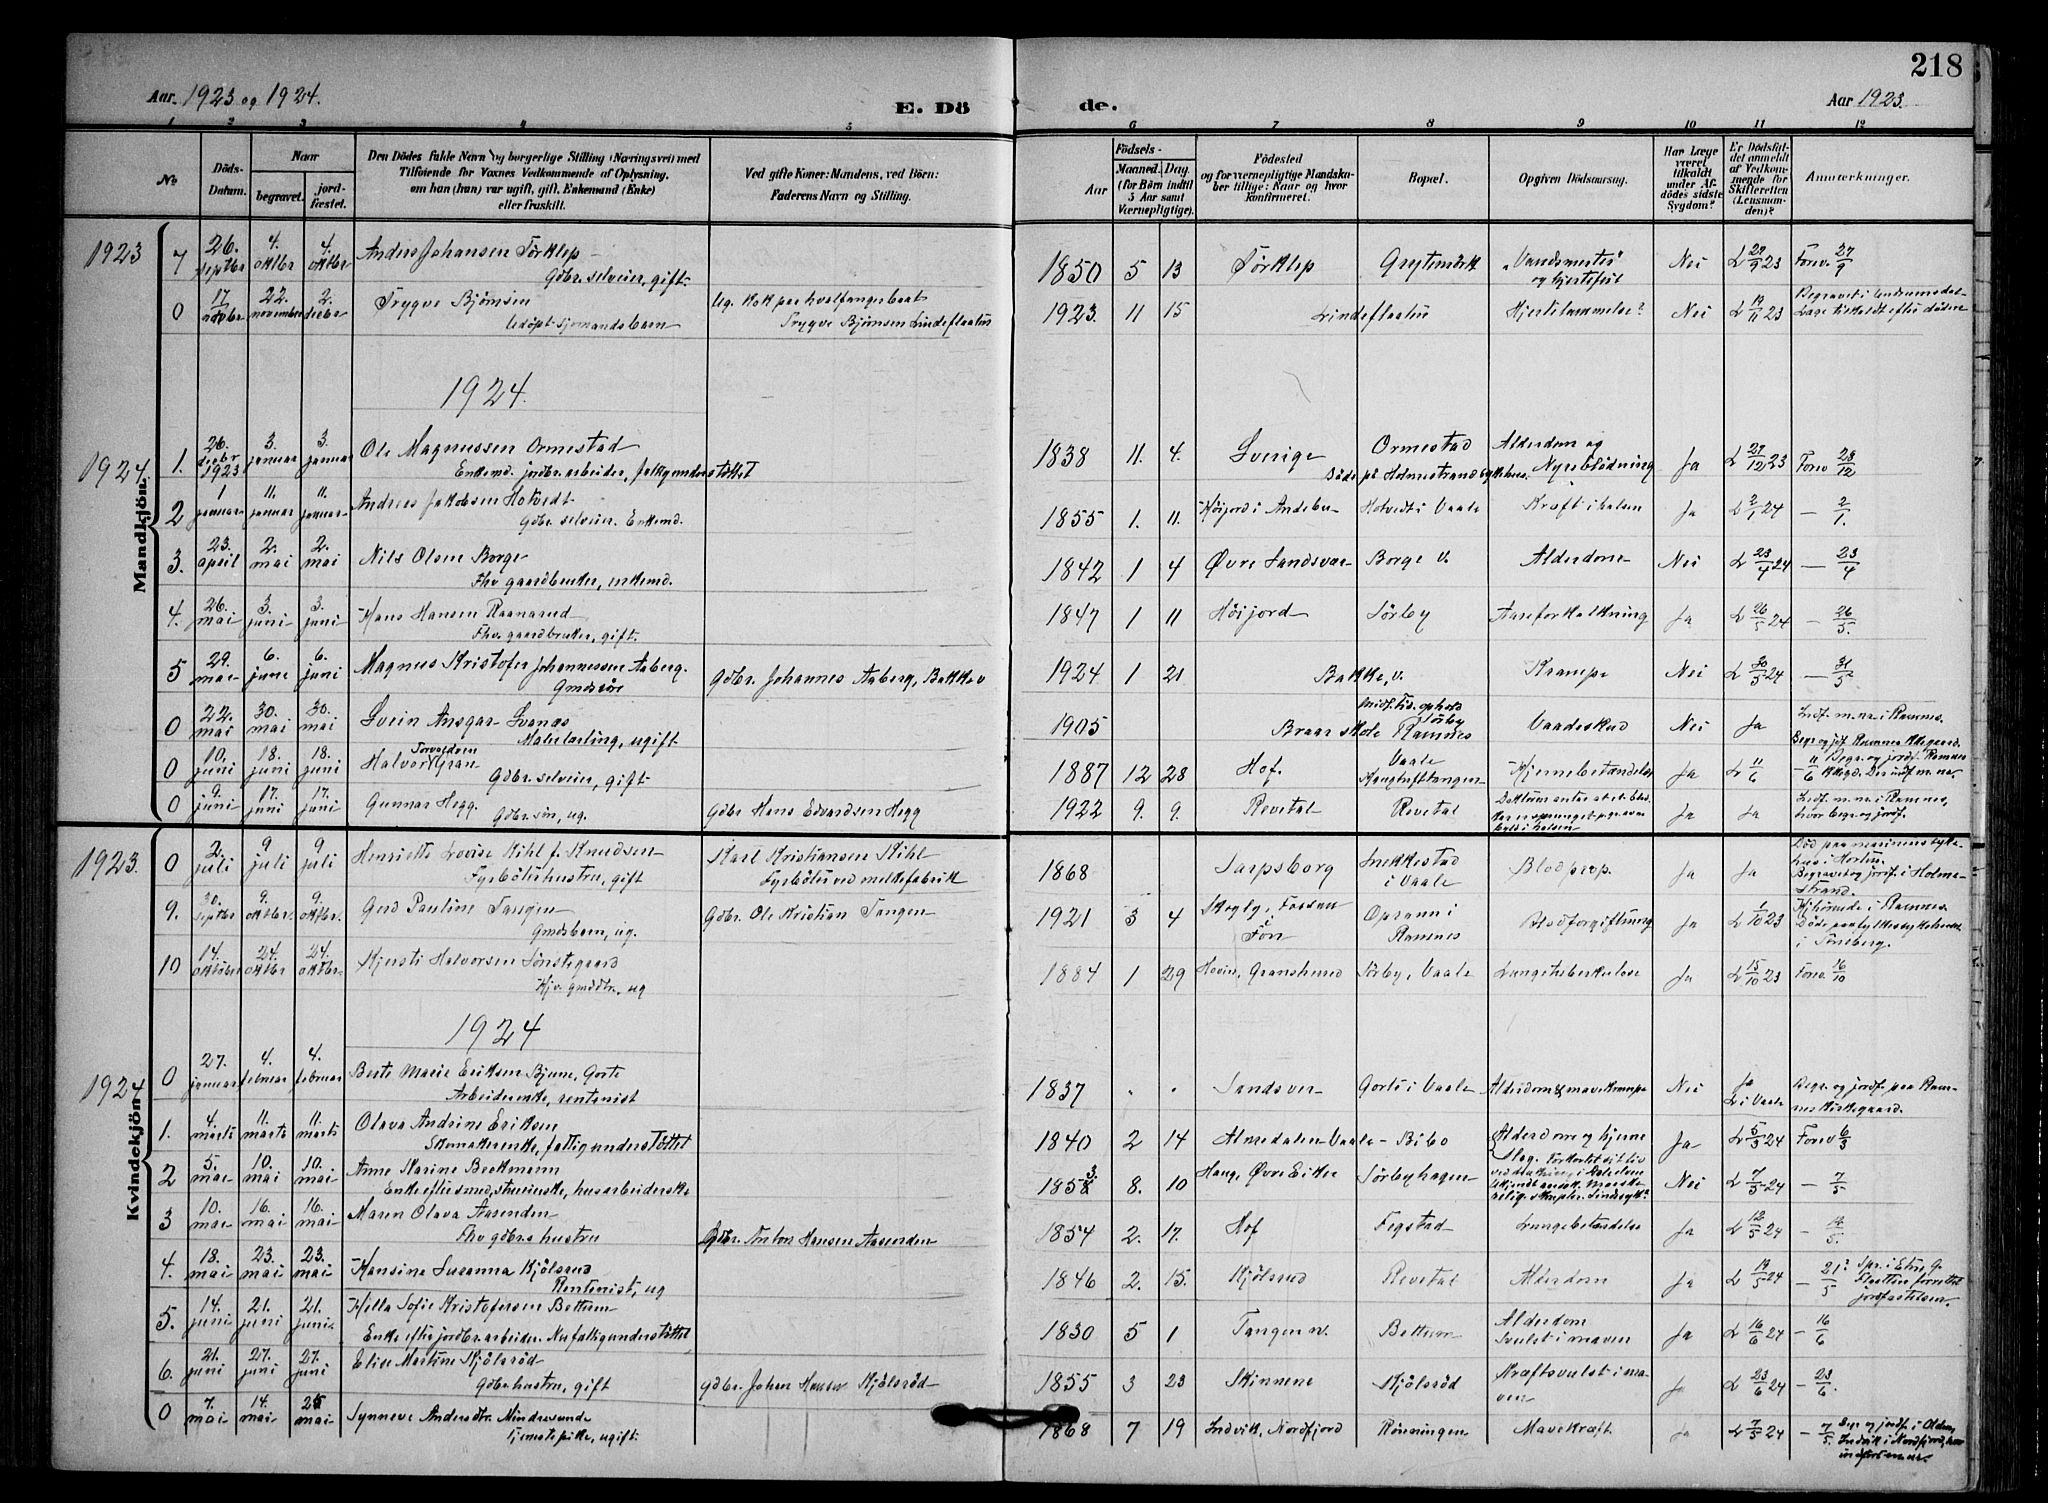 218
Aar 1923 og 1924.
E. Dö
de.
Aar 1923.
1 2 3 4 5 6 7 8 9 10 11 12
No
Döds-Datum.
Naar
begravet.
jord-fæstet.
Den Dödes fulde Navn og borgerlige Stilling (Næringsvei) med
Tilföiende for Voxnes Vedkommende af Oplysning,
om han (hun) var ugift, gift, Enkemand (Enke)
eller fraskilt.
Ved gifte Koner: Mandens, ved Börn:
Faderens Navn og Stilling.
Födsels-
Aar
Maaned. Dag.
(for Börn indtil
5 Aar samt
Værnepligtige).
Födested
og for værnepligtige Mandska-
ber tillige: Naar og hvor
konfirmeret.
Bopæl.
Opgiven Dödsaarsag.
Har Læge
været
tilkaldt
under Af-
dödes sidste
Sygdom?
Er Dödsfal-
det anmeldt
af Vedkom-
mende for
Skifteretten
(Lensman-
den)?
Anmærkninger.
Mandkjön.
1923
7 26. septbr 4. oktbr 4. oktbr Anders Johansen Törklep Gdbr. selveier, gift. 1850 5 13 Törklep Nei L 27/9 23 Forev. 27/9
0 17. novbr. 22. november 2. decbr Trygve Björnsen Sjömandsbarn Ug. Kok paa hvalfangerbaat Trygve Björnsen Lindeflaaten 1923. 11 15 Lindeflaaten Nei L 19/11 23
1924.
1924
1. 26. decbr 1923 3. januar 3. januar Ole Magnussen Ormestad Enkemd. jordbr. arbeider, fattigunderstöttet 1838 11. 4. Sverige Ormestad Död på Holmestrand sykehus. Alderdom og Nyreblödning Ja L 27/12 23 Forev 28/12
2 1 januar 11. januar 11. januar Andreas Jakobsen Hotvedt Gdbr. selveier. Enkemd. 1855 1. 11. Höijord i Andebu Hotvedt i Vaale Kræft i halsen Ja L 2/1 24 – 2/1.
3. 23. april 2. mai 2. mai Nils Olsen Borge Fhv gaardbruker, enkemd. 1842 1 4 Øvre Sandsvær Borge v. Alderdom Nei L 23/4 24 – 23/4
4. 26. mai 3. juni 3. juni Hans Hansen Raanerud Fhv. gaardbruker, gift. 1847 1 11 Höijord Sörby Aareforkalkning Ja L 26/5 24 – 26/5.
5 29. mai 6. juni 6. juni Magnus Kristofer Johannessen Aaberg. Gmdssön Gdbr. Johannes Aaberg, Bakke v 1924 1 21 Bakke, v. Krampe Nei L 30/5 24 – 31/5
0 22. mai 30. mai 30. mai Svein Ansgar Svanæs Malerlærling, ugift. 1905 Braar skole Sörby Ramnes Vaadeskud Nei Ja Indf. m. nr. i Ramnes.
0 10. juni 18. juni 18. juni Halvor Torvaldsen Gran Gdbr. selveier, gift 1887 12 28 Hof. Vaale Hjernebetændelse Ja L 11/6
0 9. juni 17. juni 17. juni Gunnar Hegg. Gdbr. sön, ug. Gdbr Hans Edvardsen Hegg 1922 9. 9. Revetal Revetal Ja Ja Indf. m. nr. i Ramnes, hvor begr. og jordf.
Kvindekjön
1923.
0 2. juli 9 juli 9 juli Henriette Lovise Kihl f. Knudsen Fyrböterhustru, gift Karl Kristiansen Kihl Fyrböter ved melkefabrik 1868 Sarpsborg Snekkestad i Vaale Blodprop. Ja Ja Död paa marinens sykehus i Horten. Begravet og jordf. i Holmestrand.
9. 30. septbr 9. oktbr. 9. oktbr. Gerd Pauline Tangen Gmdsbarn, ug. Gdbr. Ole Kristian Tangen 1921 3 4 Ramnes Blodforgiftning Ja L 1/10 23 Döde paa fylkessykehuset i Tönsberg.
10 14. oktober 24. oktbr 24. oktbr. Kjersti Halvorsen Sönstegaard Hjv. gmddtr., ug 1884 1 29 Hovin, Gransherad Sörby, Vaale Lungetuberkulose Ja L 15/10 23 Forev. 16/10
1924
1924
0 27. januar 4. februar 4. februar Berte Marie Eriksen Bjune, Gorte Arbeiderenke, rentenist 1837 " " Sandsver Gorte i Vaale Alderdom & mavekrampe Nei Ja L i Vaale Begr. og jordf. paa Ramnes kirkegaard.
1. 4. marts 11. marts 11. marts Olava Andrine Eriksen Skomakerenke, fattigunderstöttet 1840 2 14 Almedalen Vaale Bibo Alderdom og hjerneslag. Ja L 5/3 24 Forev 6/3
2 5. mai 10. mai 10. mai Anne Karine Beckmann Enke efter smed, husarbeiderske 1858 8. 10 Haug, Øvre Eiker Sörbyhagen Nei L 7/5 24 – 7/5
3 10. mai 16. mai 16. mai Maren Olava Aasenden Fhv gdbrs hustru Gdbr. Anton Hansen Aasenden 1854 2. 17. Hof Fegstad Lungebetændelse Ja L 12/5 24 – 12/5.
4. 18. mai 23. mai 23. mai Hansine Susanna Kjölsrud Rentenist, ug 1846 2. 15. Kjölsrud Revetal Alderdom Ja L 19/5 24 – 21/5
5. 14. juni 21. juni 21. juni Hella Sofie Kristofersen Bettum Enke efter jordbr. arbeider. Nu fattigunderstöttet 1830 5 1 Tangen n. Bettum Alderdom Svulst i maven Ja L 16/6 24 – 16/6
6. 21. juni 27. juni 27. juni Elise Martine Kjölsröd Gdbr hustru, gift Gdbr. Johan Hansen Kjölsröd 1855 3 23 Skinnene Kjölsröd Kræftsvulst i maven Ja L 23/6 24 – 23/6.
0 7. mai 14. mai 25 mai Synneve Andersdtr. Mindresunde Tjenestepike, ugift. 1868 7 19 Indvik, Nordfjord Rönningen Mavekræft Ja L 7/5 24 – 7/5. Begr. og jordf. i Olden, Indvik i Nordfjord, hvor indfört m. nr.